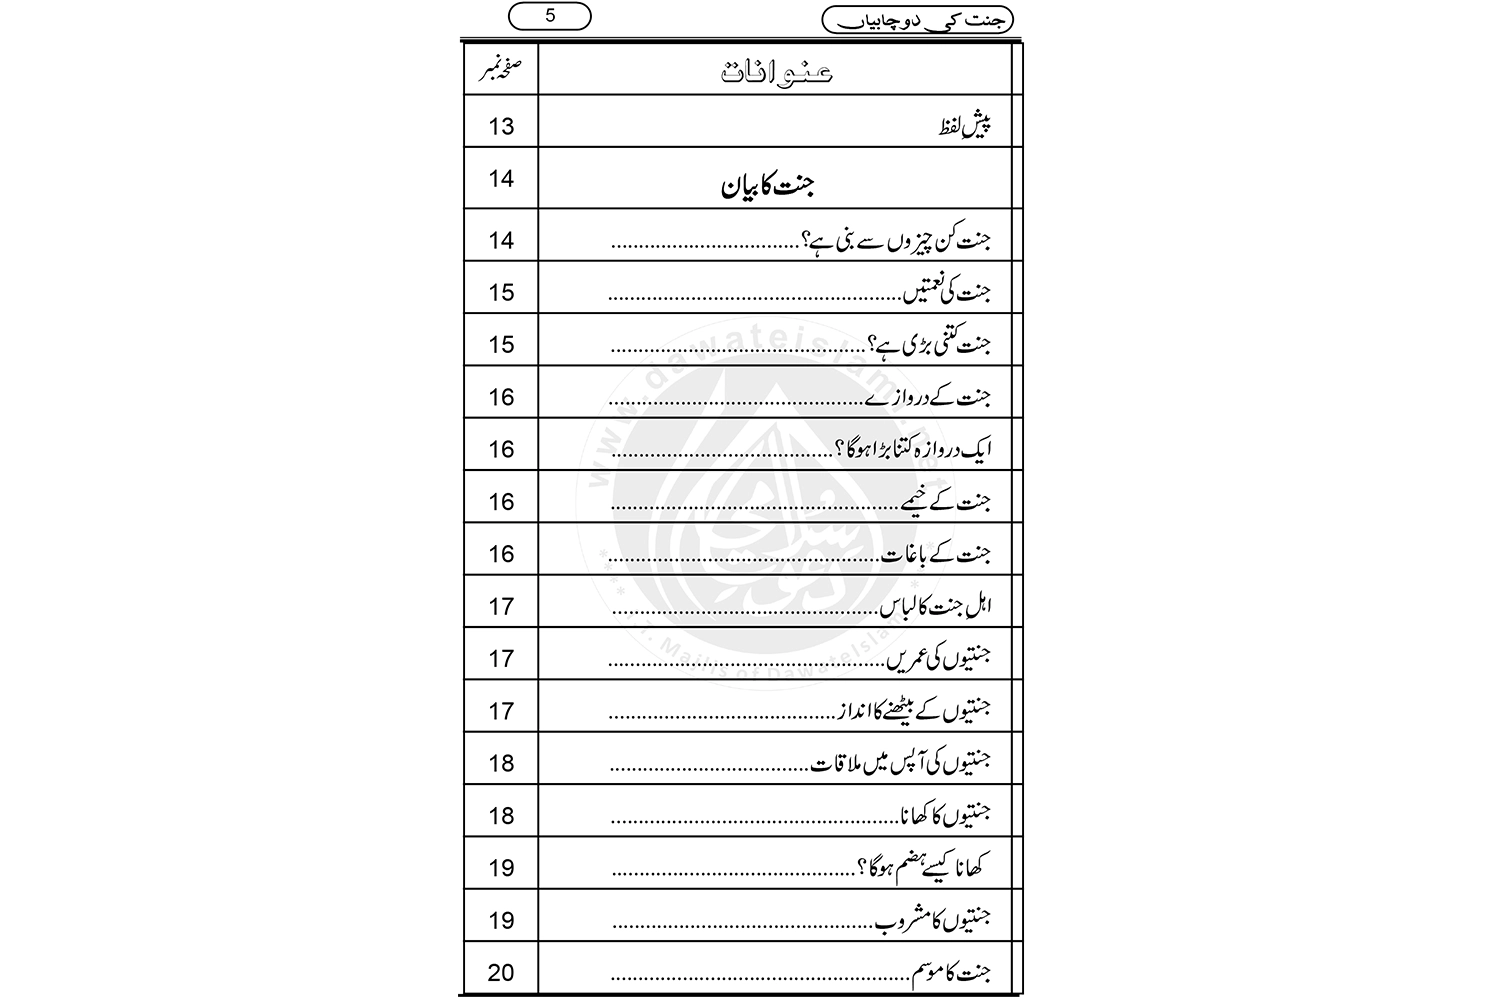 جنت کی دو چابیاں 5
عنوانات صفحہ نمبر
پیشِ لفظ 13
جنت کا بیان 14
جنت کن چیزوں سے بنی ہے؟.................................. 14
جنت کی نعمتیں..................................................... 15
جنت کتنی بڑی ہے؟.............................................. 15
جنت کے دروازے.............................................. 16
ایک دروازہ کتنا بڑا ہوگا؟........................................ 16
جنت کے خیمے.................................................... 16
جنت کے باغات................................................. 16
اہلِ جنت کا لباس................................................ 17
جنتیوں کی عمریں.................................................. 17
جنتیوں کے بیٹھنے کا انداز......................................... 17
جنتیوں کی آپس میں ملاقات.................................... 18
جنتیوں کا کھانا.................................................... 18
کھانا کیسے ہضم ہوگا؟............................................ 19
جنتیوں کا مشروب............................................... 19
جنت کا موسم...................................................... 20
www.dawateislami.net
I.T. Majlis of DawateIslami